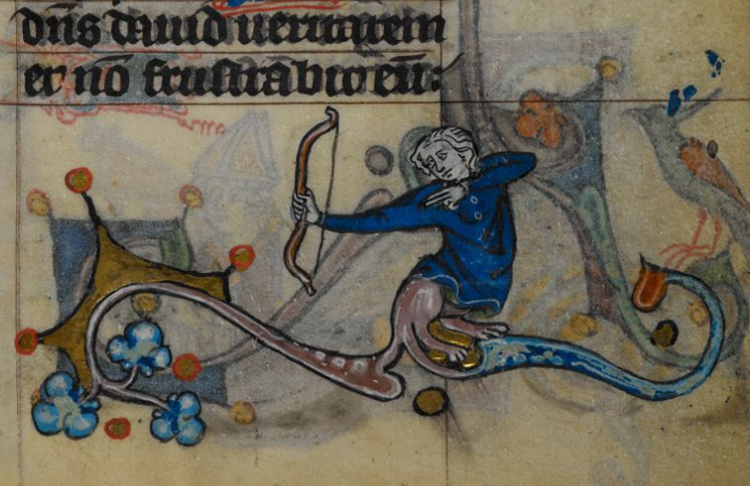 dns dauid ueritatem
et no frustrabit eu: